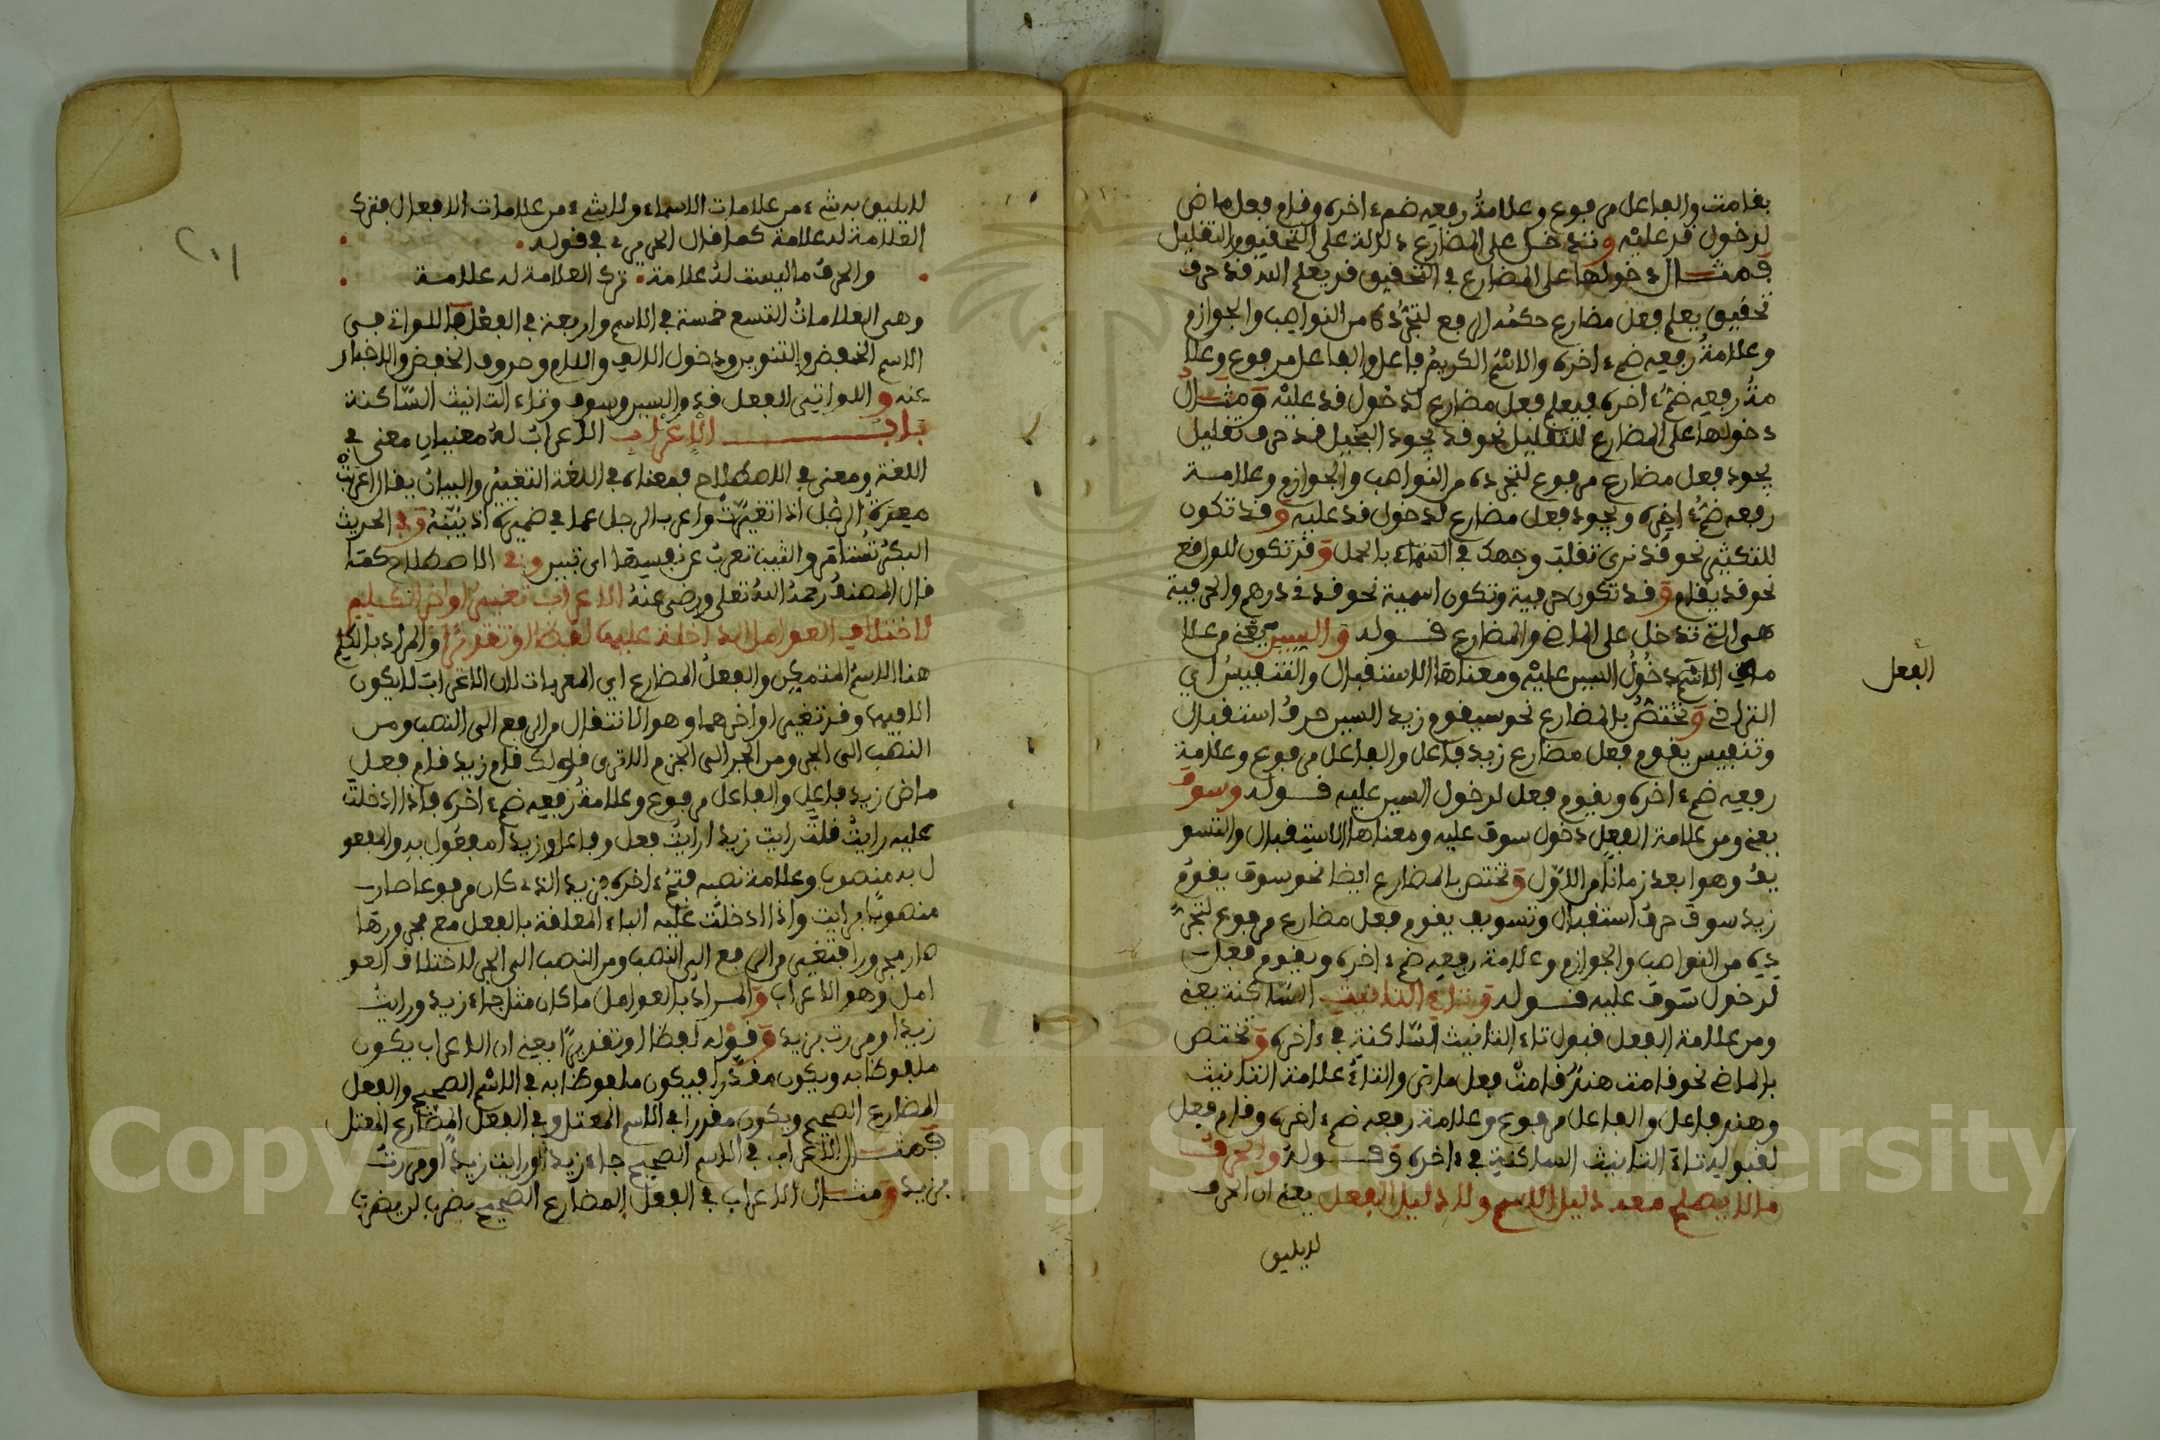 بقامت والفاعل مرفوع وعلامة رفعه ضمة ءاخره وقام فعل ماض
لدخول قد عليه وتدخل على المضارع دلالة على التحقيق والتقليل
فمثال دخولها على المضارع في التحقيق قد يعلم الله فقد حرف
تحقيق يعلم فعل مضارع حكمه الرفع لتجرده من النواصب والجوازم
وعلامة رفعه ضمة ءاخره والاسم الكريم فاعل والفاعل مرفوع وعلا
مة رفعه ضمة ءاخره فيعلم فعل مضارع لدخول قد عليه ومثال
دخولها على المضارع للتقليل نحو قد يجود البخيل فقد حرف تقليل
يجود فعل مضارع مرفوع لتجرده من النواصب والجوازم وعلامة
رفعه ضمة ءاخره ويجود فعل مضارع لدخول قد عليه وقد تكون
للتكثير نحو قد نرى تقلب وجهك في السماء بالجمل وقد تكون للواقع
نحو قد يقام وقد تكون حرفية وتكون اسمية نحو قد في درهم والحرفية
هي التي تدخل على الماضي والمضارع قوله والسين يعني من علا
مة الاسم دخول السين عليه ومعناها الاستقبال والتنفيس أي
الفعل
التراخي وتختص بالمضارع نحو سيقوم زيد السين حرف استقبال
وتنفيس يقوم فعل مضارع زيد فاعل والفاعل مرفوع وعلامة
رفعه ضمة ءاخره ويقوم فعل لدخول السين عليه قوله وسوف
يعني ومن علامة الفعل دخول سوف عليه ومعناها الاستقبال والتسو
يف وهوا بعد زمانا من الاول وتختص بالمضارع ايضا نحو سوف يقوم
زيد سوف حرف استقبال وتسويف يقوم فعل مضارع مرفوع لتجر
ده من النواصب والجوازم وعلامة رفعه ضمة ءاخره ويقوم فعل
لدخول سوف عليه قوله وتاء التانيث الساكنة يعني
ومن علامة الفعل قبول تاء التانيث الساكنة في ءاخره وتختص
بالماضي نحو قامت هند قامت فعل ماض والتاء علامة التانيث
وهند فاعل والفاعل مرفوع وعلامة رفعه ضمة ءاخره وقام فعل
لقبوله تاء التانيث الساكنة في ءاخره وقوله والحرف
ما لا يصلح معه دليل الاسم ولا دليل الفعل يعني ان الحرف
لا يليق
لا يليق به شيء من علامات الاسماء ولا شيء من علامات الافعال فترك
العلامة له علامة كما قال الحريري في قوله
والحرف ما ليست له علامة ترك العلامة له علامة
وهي العلامات التسع خمسة في الاسم واربعة في الفعل فاللواتي في
الاسم الخفض والتنوين ودخول الالف واللام وحروف الخفض والاخبار
عنه واللواتي في الفعل قد والسين وسوف وتاء التانيث الساكنة
باب الاعراب الاعراب له معنيان معنى في
اللغة ومعنى في الاصطلاح فمعناه في اللغة التغيير والبيان يقال اعربت
معدة الرجل اذا تغيرت واعرب الرجل عما في ضميره اذ بينه وفي الحديث
البكر تستامر والثيب تعرب عن نفسها اي تبين وفي الاصطلاح كما
قال المصنف رحمه الله تعلى ورضي عنه الاعراب تغيير اواخر الكليم
لاختلاف العوامل الداخلة عليها لفظا او تقديرا والمراد بالكلم
هنا الاسم المتمكن والفعل المضارع اي المعربات لان الاعراب لا يكون
الا فيها وقد تغير اواخرهما وهو الانتقال من الرفع الى النصب ومن
النصب الى الجر ومن الجر الى الجزم الا ترى قولك قام زيد قام فعل
ماض زيد فاعل والفاعل مرفوع وعلامة رفعه ضمة ءاخره فاذا ادخلت
عليه رايت قلت رايت زيدا رايت فعل وفاعل وزيدا مفعول به والمفعو
ل به منصوب وعلامة نصبه فتحة ءاخره فزيد الذي كان مرفوعا صار
منصوبا برايت واذا ادخلت عليه الباء المعلقة بالفعل مع مجرورها
صار مجرورا فتغير من الرفع الى النصب ومن النصب الى الجر لاختلاف العو
امل وهو الاعراب والمراد بالعوامل ما كان مثل جاء زيد ورايت
زيدا ومررت بزيد وقوله لفظا او تقديرا يعني ان الاعراب يكون
ملفوظا به ويكون مقدرا فيكون ملفوظا به في الاسم الصحيح والفعل
المضارع الصحيح ويكون مقدرا في الاسم المعتل وفي الفعل المضارع المعتل
فمثال الاعراب في الاسم الصحيح جاء زيد ورايت زيدا ومررت
بزيد ومثال الاعراب في الفعل المضارع الصحيح يضرب لن يضرب
Copyright © King Saud University